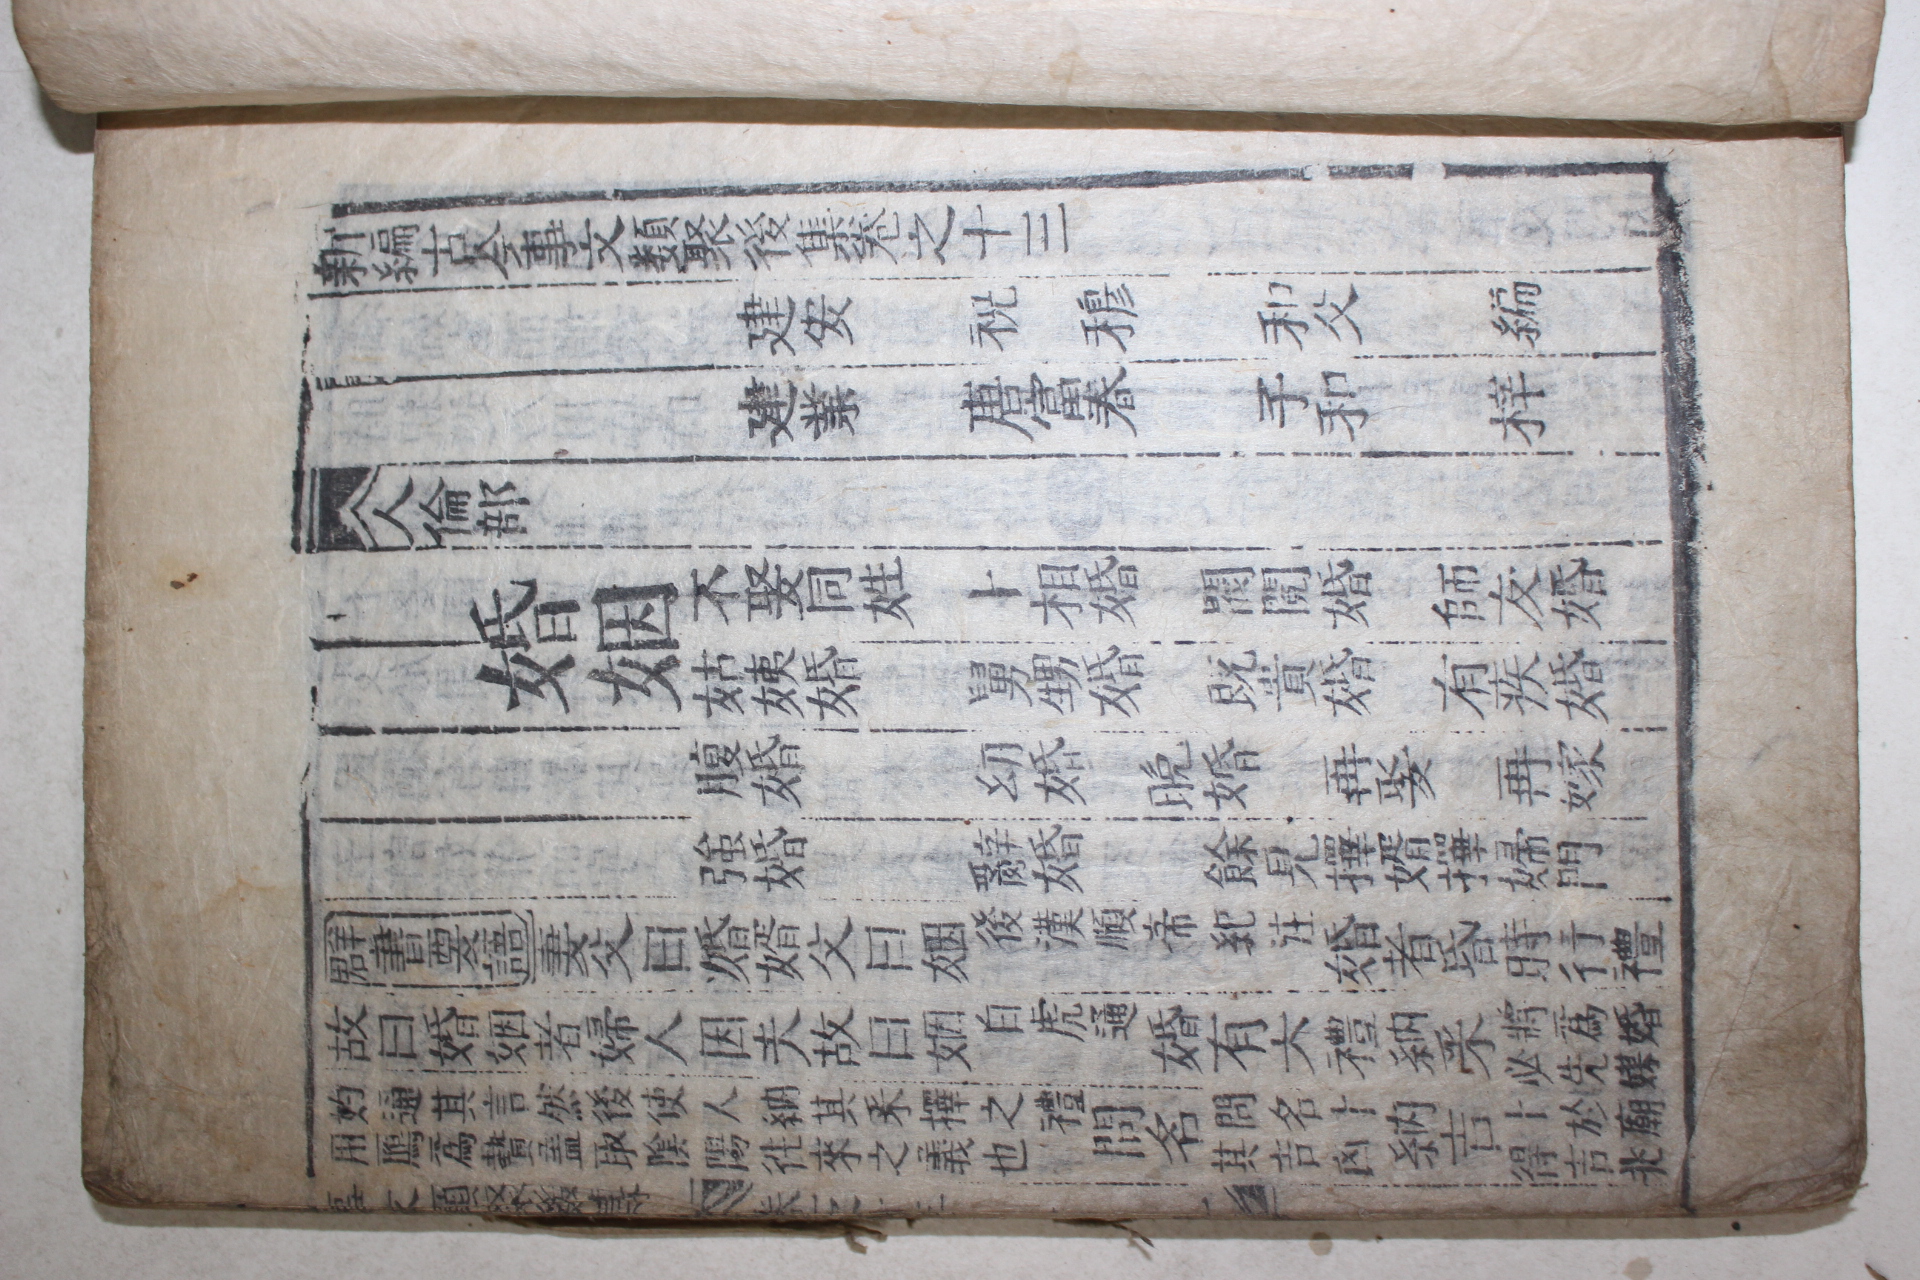 新編古今事文類聚後集卷之十三
建安 祝 穆 和父 編
建業 唐富春 子和 梓
人倫部
婚姻
不娶同姓 卜相婚 閥閱婚 師友婚
姑姨婚 舅甥婚 既貴婚 有疾婚
腹婚 幼婚 晚婚 再娶 再嫁
強婚 辭婚 餘見擇婿擇婦門
群書要語妻父曰婚婿父曰姻後漢順帝紀注婚者昏時行禮
故曰婚姻者婦人因夫故曰姻白虎通婚有六禮納采將爲婚必先媒
妁通其言然後使人納其采擇之禮
用鴈爲贄盖取陰陽徃來之義也問名問名卜其吉凶納吉卜於廟得吉兆